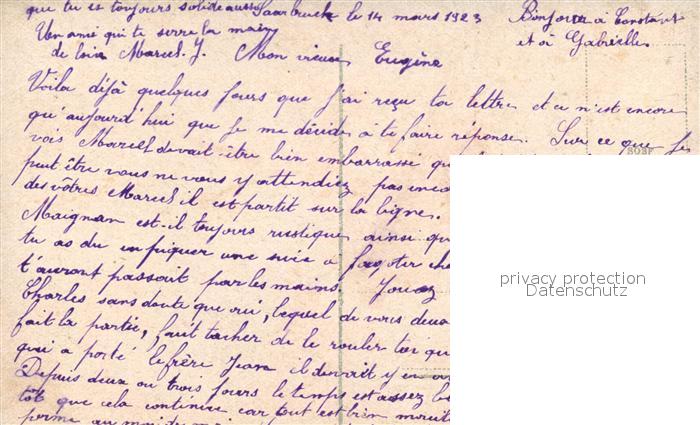 que tu es toujours solide aussi Saarbruck le 14 mars 1923
Bonjour à Constant
et à Gabrielle
Un ami qui te serre la main
de loin Marcel. J. Mon vieux Eugène
Voila déjà quelques jours que j'ai reçu ta lettre et ce n'est encore
qu'aujourd'hui que je me décide, à te faire réponse. Sur ce que je
vois Marcel devait être bien embarrassé
peut être vous ne vous y attendiez pas
des vôtres Marcel il est partit sur la ligne.
Maignan est-il toujours rustique, ainsi
tu as du en piquer une suie a fagoter
t'auront passait par les mains. Jouez
Charles sans doute que oui, lequel de vous deux
fait la partie, faut tacher de le rouler toi
quoi a porté le frère Jean il devait y en
Depuis deux ou trois jours le temps est assez
tôt que cela continue car tout est bien
SOEF
privacy protection
Datenschutz